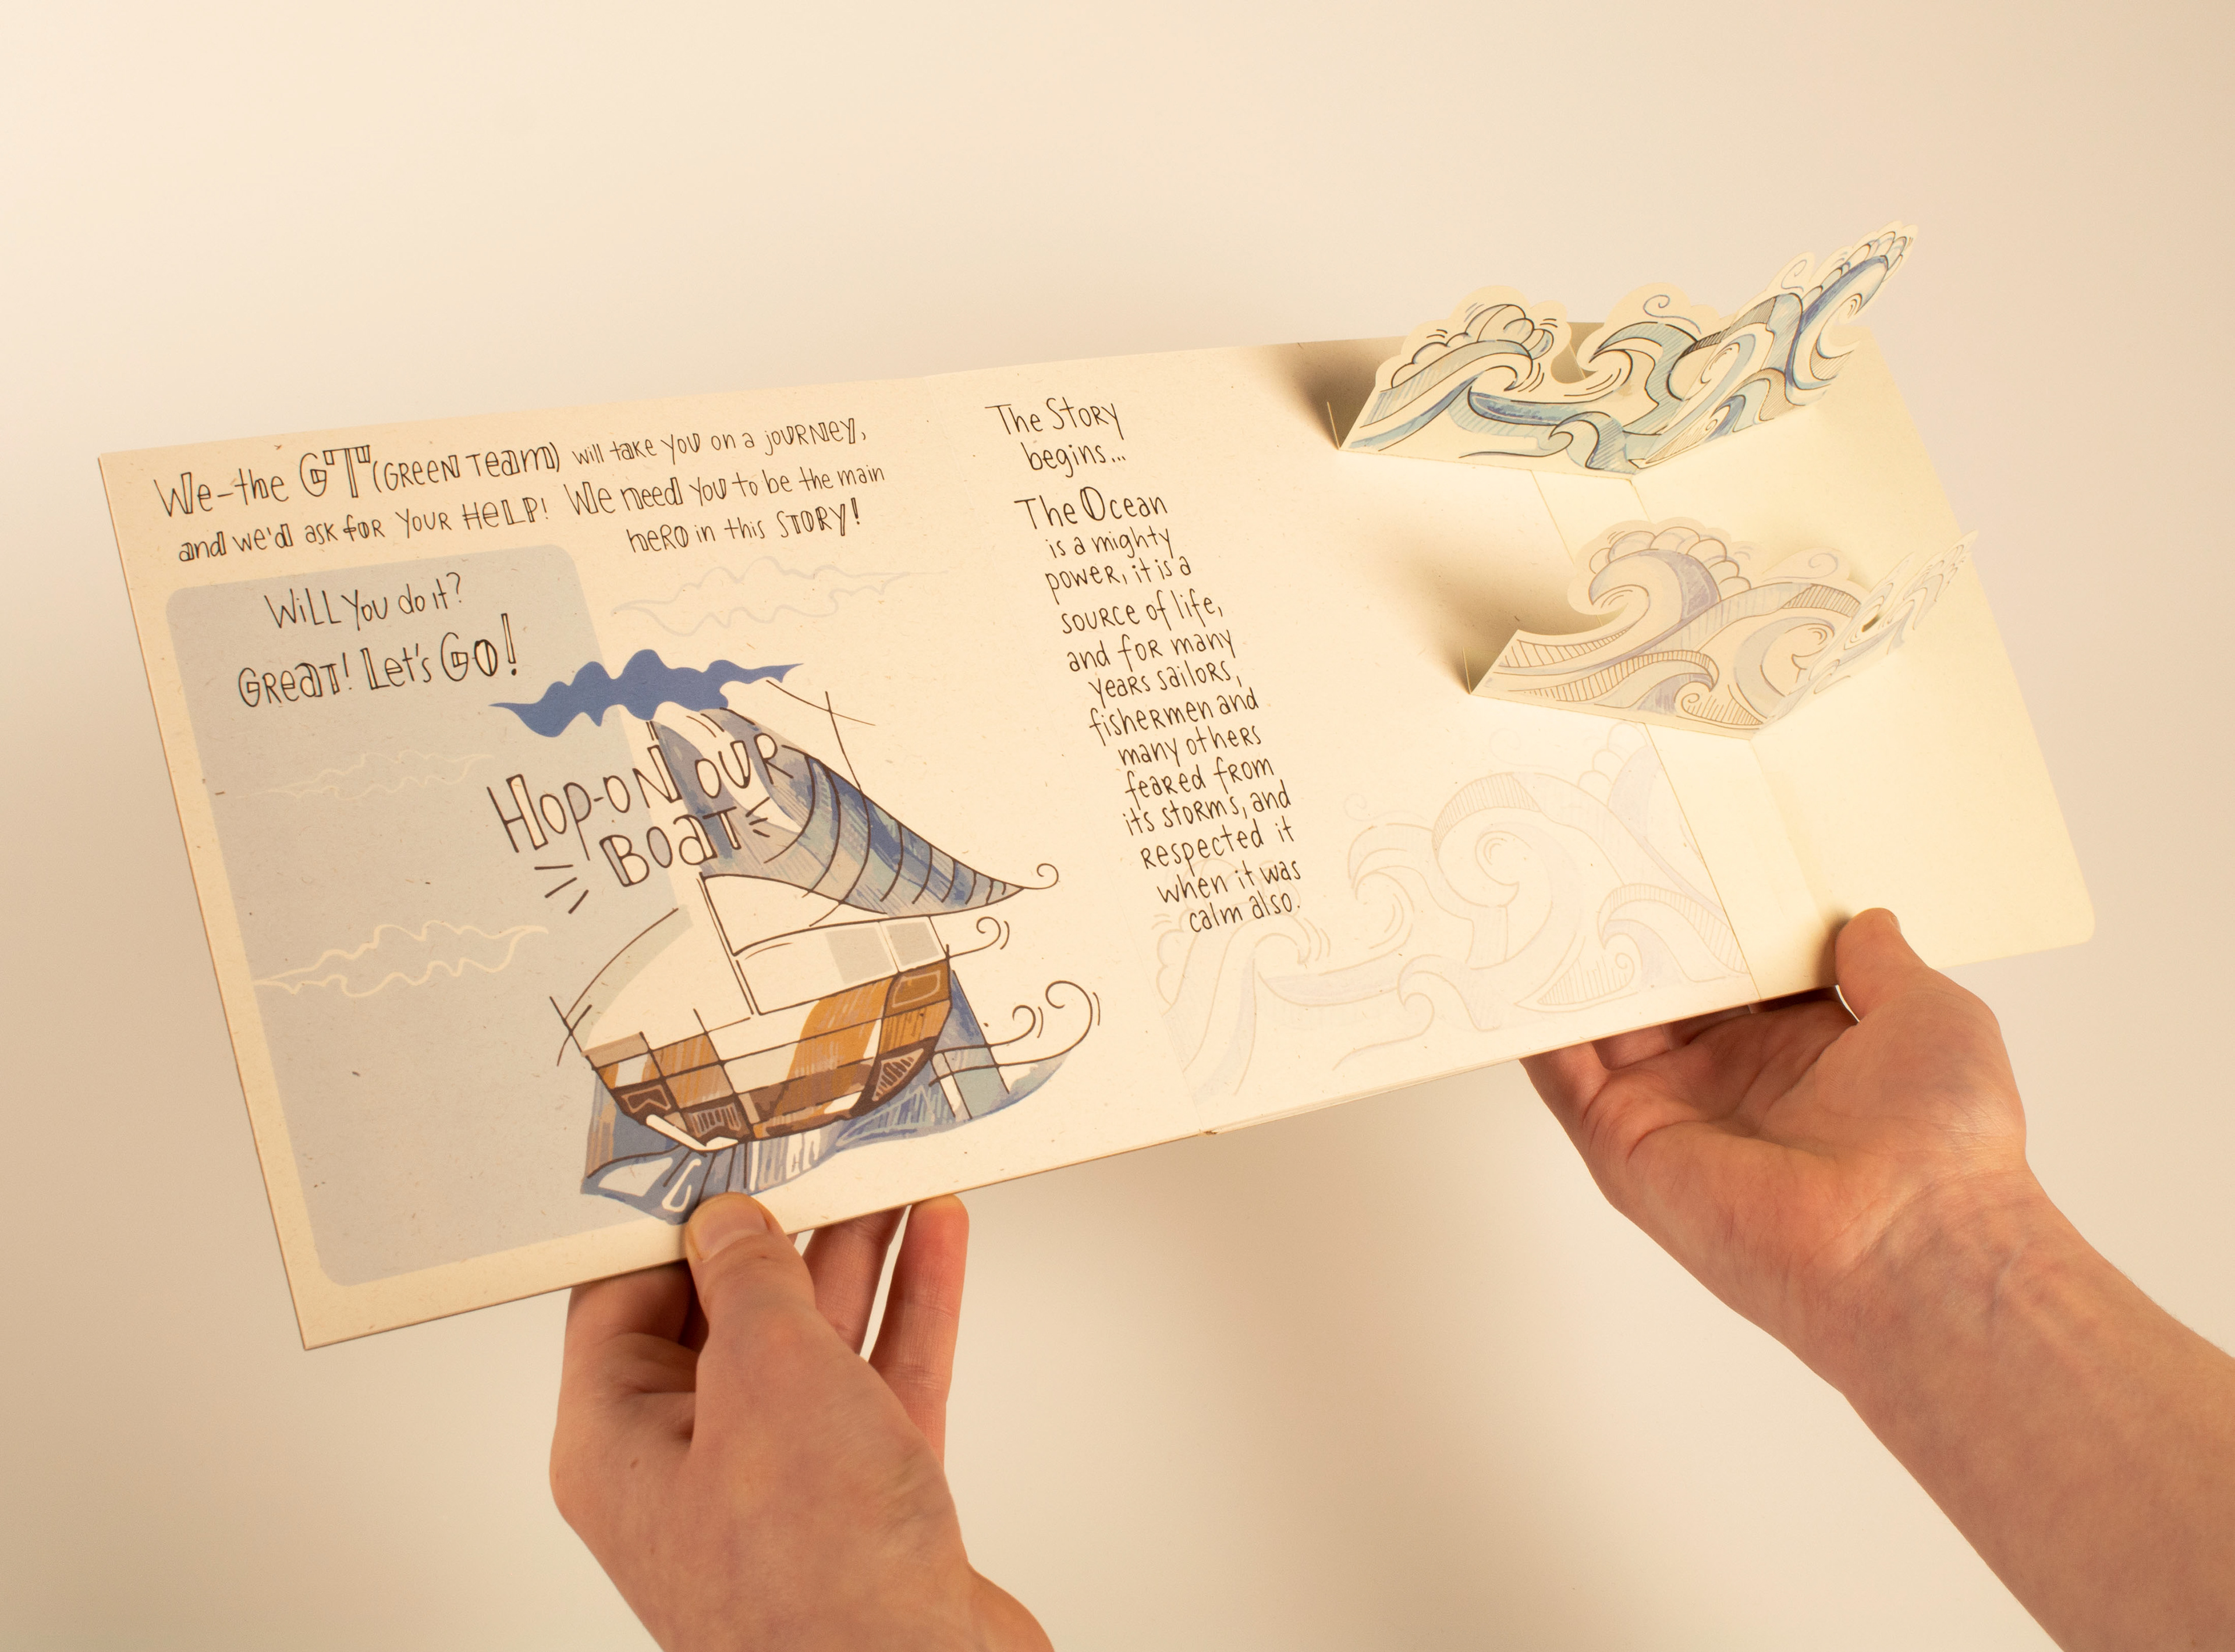 We-the GT (GREEN Team) will take you on a JOURNEY,
and we'd ask for YOUR HELP! We need you to be the main
HERO in this STORY!
Will You do it?
GREAT! Let's GO!
Hop-ON OUR
BOAT
The Story
begins...
The Ocean
is a mighty
power, it is a
source of life,
and for many
years sailors,
fishermen and
many others
feared from
its storms, and
respected it
when it was
calm also.